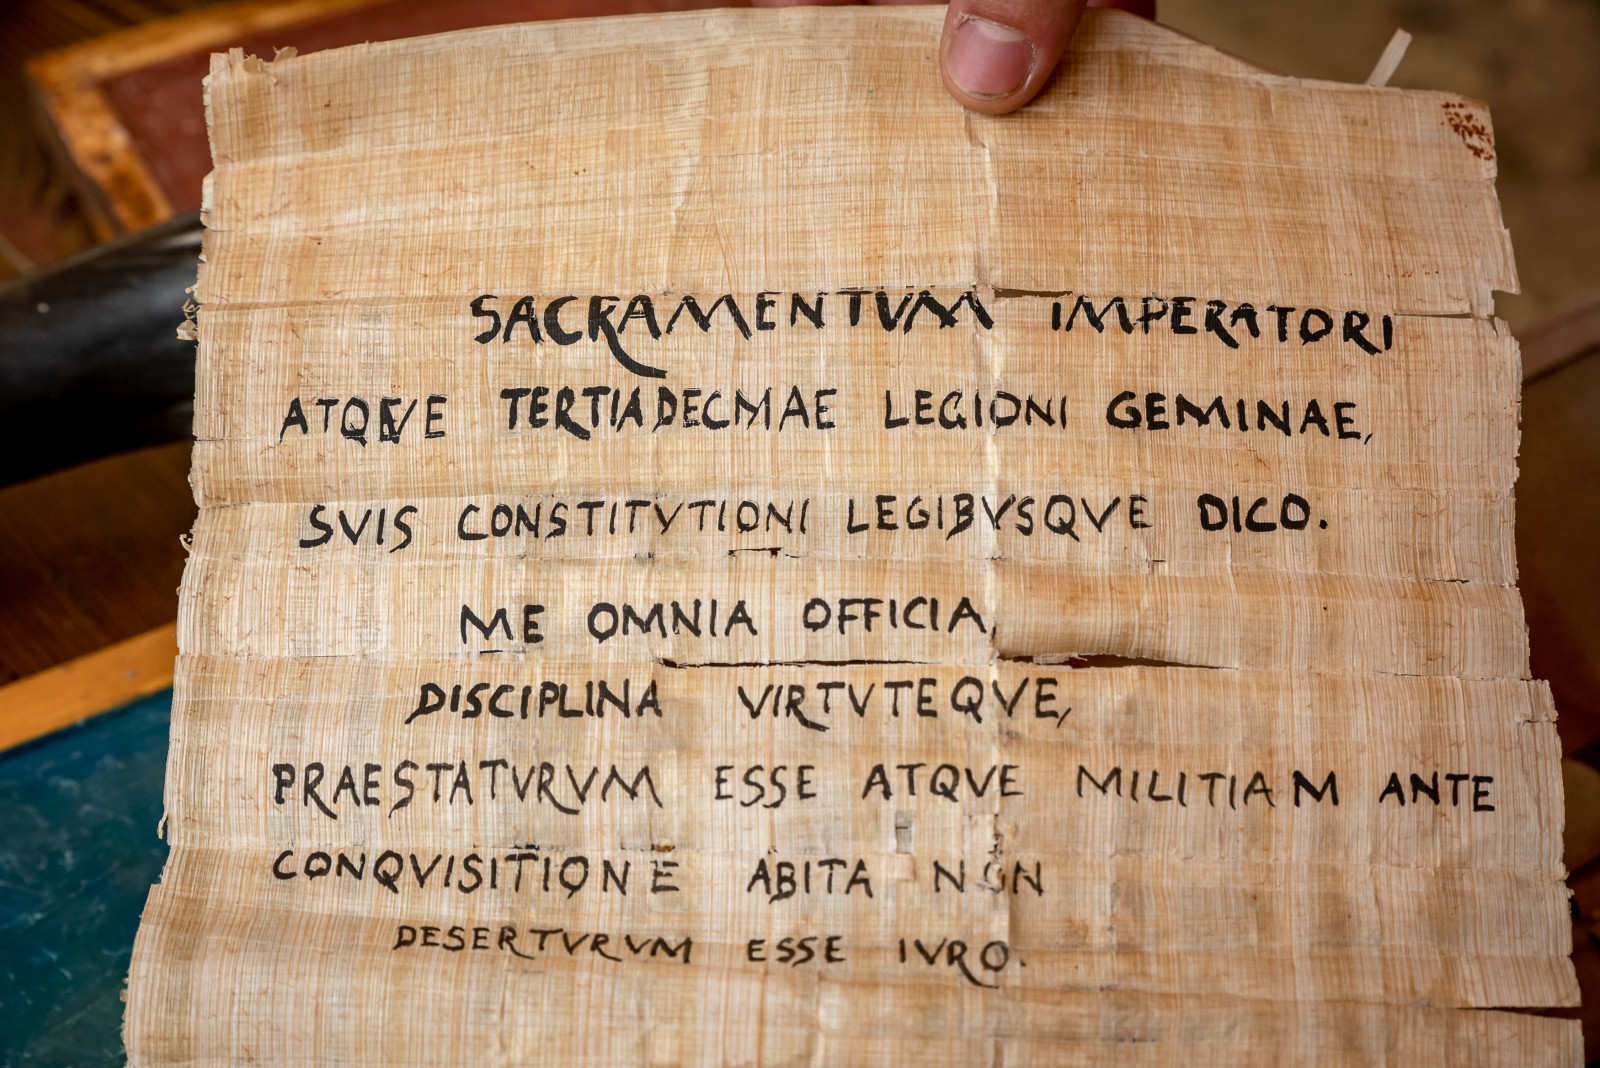 SACRAMENTVM IMPERATORI
ATQVE TERTIADECMAE LEGIONI GEMINAE,
SVIS CONSTITVTIONI LEGIBVSQVE DICO.
ME OMNIA OFFICIA,
DISCIPLINA VIRTVTEQVE,
PRAESTATVRVM ESSE ATQVE MILITIAM ANTE
CONQVISITIONE ABITA NON
DESERTVRVM ESSE IVRO.